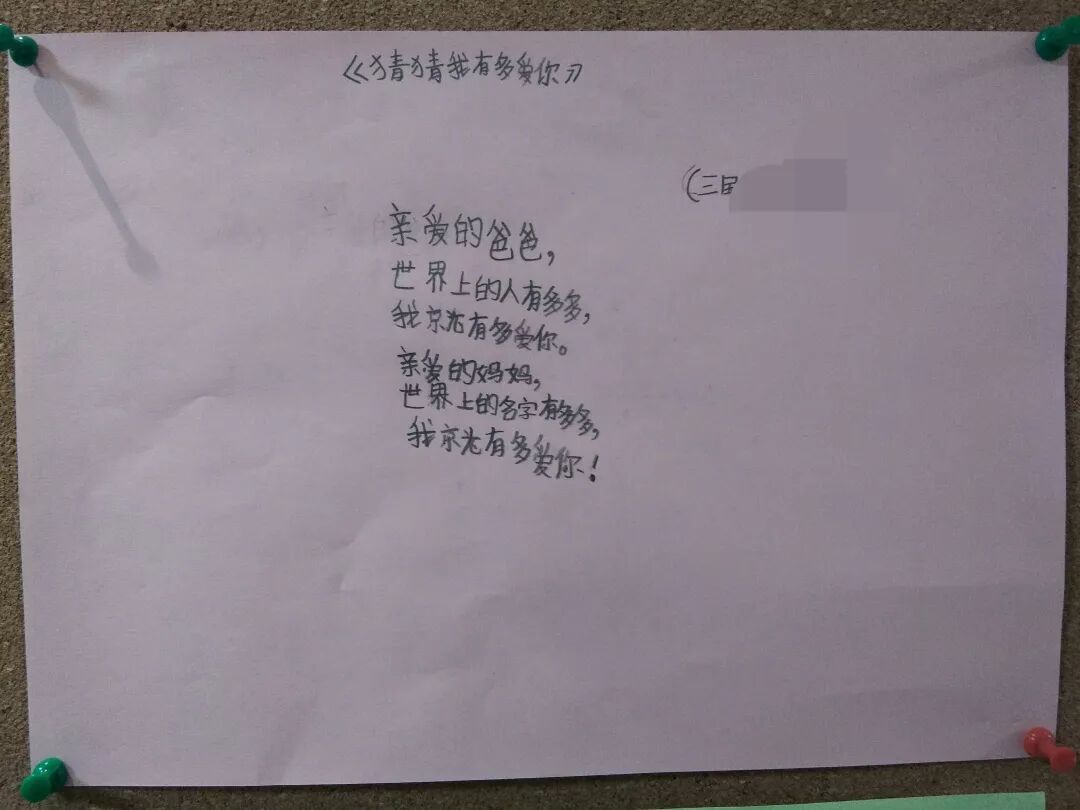 《猜猜我有多爱你》
(三
亲爱的爸爸,
世界上的人有多多,
我京尤有多爱你。
亲爱的妈妈,
世界上的名字有多多,
我京尤有多爱你!